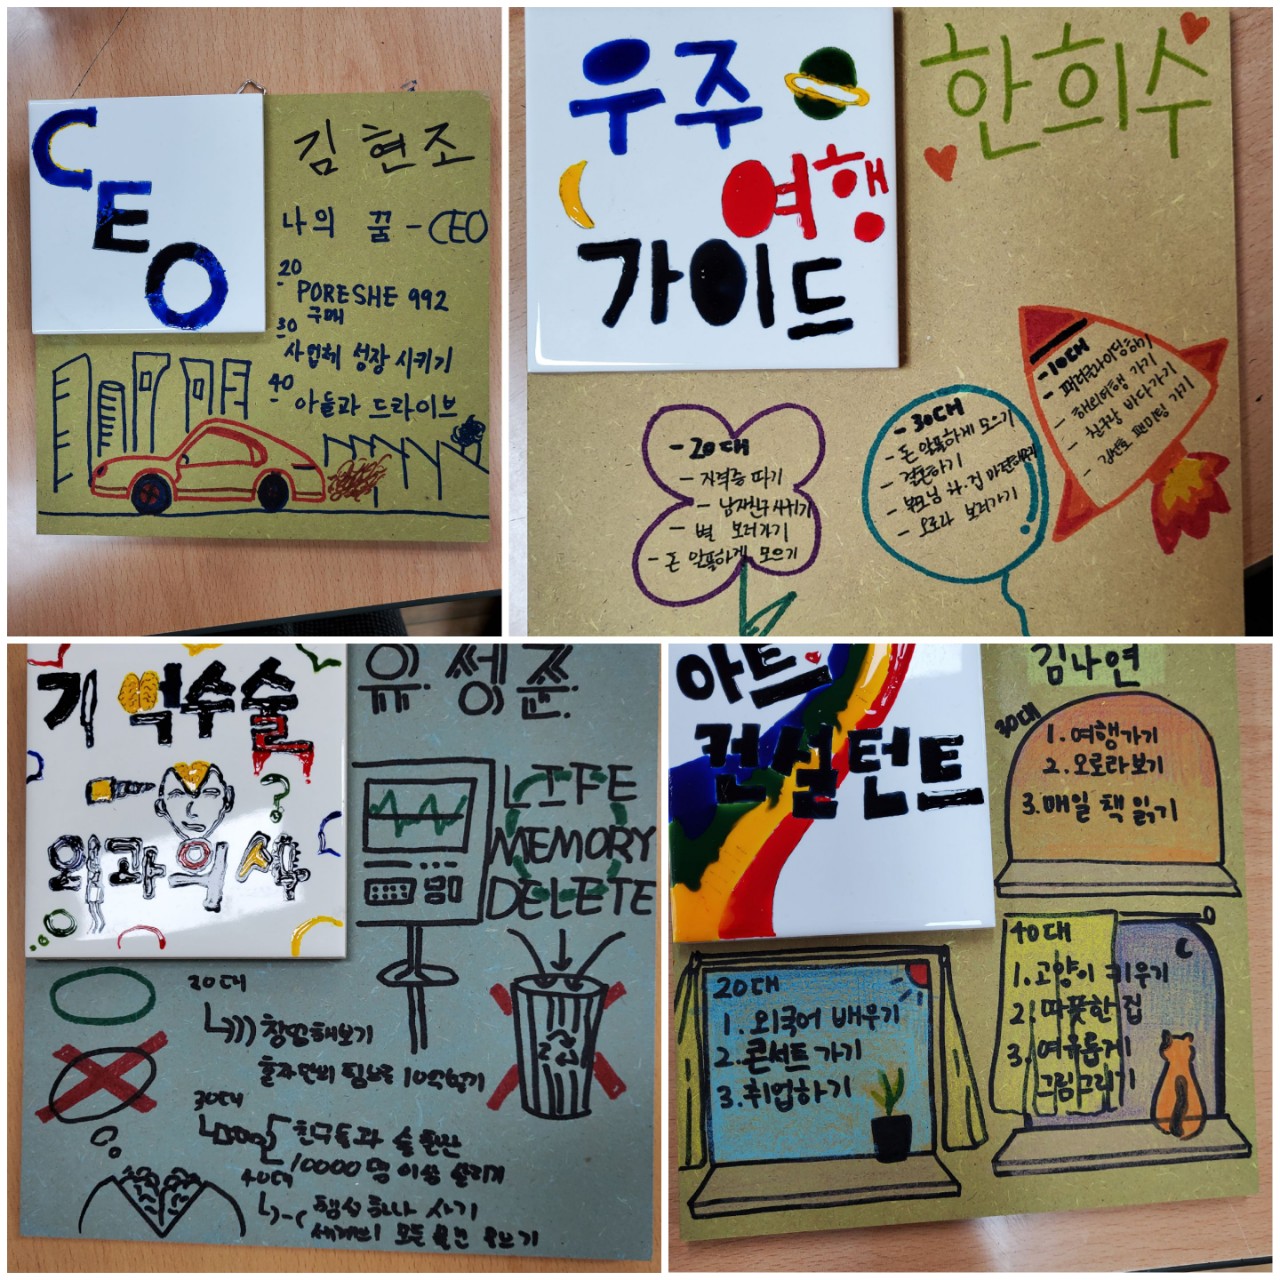 CEO
김현조
나의 꿈 - CEO
20
PORESHE 992
구매
30
사업체 성장 시키기
40
아들과 드라이브
우주
여행
가이드
한희수
- 10대
- 패러글라이딩하기
- 해외여행 가기
- 친구랑 바다가기
- 김선호 팬미팅 가기
- 20대
- 자격증 따기
- 남자친구 사귀기
- 별 보러가기
- 돈 악플하게 모으기
- 30대
- 돈 악플하게 모으기
- 결혼하기
- 부모님 차·집 마련해주기
- 오로라 보러가기
기억수술
외과의사
유성준.
LIFE
MEMORY
DELETE
20대
창업해보기
혼자만의 힘으로 10억벌기
30대
친구들과 술
10000명 이상 살리기
40대
행성 하나 사기
세계의 모든
아트
컨설턴트
김나연
30대
1. 여행가기
2. 오로라보기
3. 매일 책 읽기
20대
1. 외국어 배우기
2. 콘서트 가기
3. 취업하기
40대
1. 고양이 키우기
2. 따뜻한 집
3. 여유롭게
그림그리기